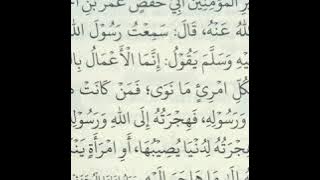 الْمُؤْمِنِينَ أَبِي حَفْصٍ عُمَرَ بْنِ
اللهُ عَنْهُ، قَالَ: سَمِعْتُ رَسُولَ اللهِ
وَسَلَّمَ يَقُولُ: إِنَّمَا الْأَعْمَالُ
امْرِئٍ مَا نَوَى؛ فَمَنْ كَانَتْ
وَرَسُولِهِ، فَهِجْرَتُهُ إِلَى اللهِ وَرَسُولِهِ
لِدُنْيَا يُصِيبُهَا، أَوِ امْرَأَةٍ
هَاجَرَ إِلَيْهِ